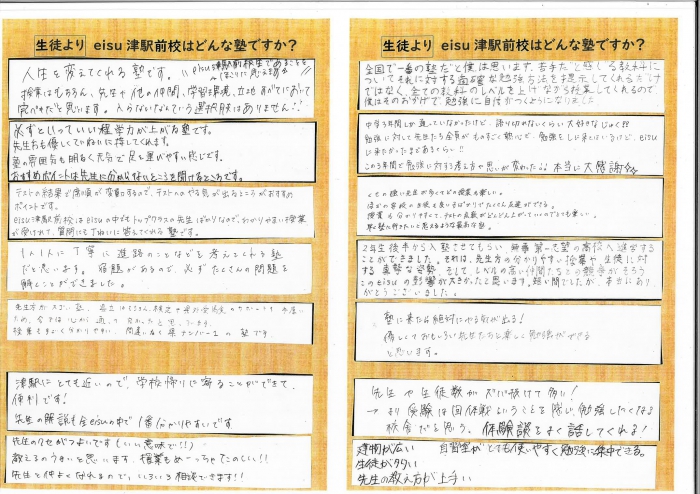 生徒より eisu 津駅前校はどんな塾ですか?
人生を変えてくれる塾です。
授業はもちろん、先生や他の仲間、学習環境、立地 すべてにおいて
完ぺきだと思います。入らないなんていう選択肢はありません!!
必ずといっていい程学力が上がる塾です。
先生方も優しくていねいに接してくれます。
塾の雰囲気も明るく大会で足を運びやすい感じです。
おすすめポイントは先生に分からないところを聞けるところです。
テストの結果で席順が変動するので、テストへのやる気が出るところがおすすめ
ポイントです。
eisu津駅前校はeisuの中でもトップクラスの先生ばかりなので、分かりやすい授業
が受けれて、質問にも丁ねいに答えてくれる塾です。
1人1人に丁寧に進路のことなどを考えてくれる塾
だと思います。宿題があるので、必ずたくさんの問題を
解くことができました。
授業もすごく分かりやすい。間違いなく県ナンバー1の塾です
津駅にとても近いので、学校帰りに寄ることができて、
便利です!
先生の解説も全eisuの中で1番分かりやすいです
先生のクセがつよいです(いい意味で!!)
教えるのうまいと思います。授業もめーっちゃたのしい!!
先生と仲よくなれるので、いろいろ相談できます!!
生徒より eisu 津駅前校はどんな塾ですか?
全国で一番の塾だと僕は思います。苦手だと感じる教科に
ついてそれに対する適確な勉強方法を提示してくれるだけ
ではなく、全ての教科のレベルを上げながら授業してくれるので
僕はそのおかげで勉強に自信がつくようになりました
中学3年間しか通っていなかったけど、語り切れないくらい大好きな塾!!
勉強に対して先生たち全員がものすごく熱心で、勉強をしに来てはいるけど、eisu
に来たかったまである〜!!
この3年間で勉強に対する考え方や思いが変わったよ 本当に大感謝☆☆
2年生後半から入塾させてもらい 無事第一志望の高校へ進学する
ことができました。それは、先生方の分かりやすい授業や、生徒に対
する真摯な姿勢、そしてレベルの高い仲間たちとの競争がそろう
このeisuの影響が大きかったと思います。短い間でしたが、本当にあり
がとうございました。
塾に来たら絶対にやる気が出る!
優しくておもしろい先生たちと楽しく勉強ができる
と思います。
先生や生徒数がズバ抜けて多い!
→より受験は団体戦ということを感じ、勉強したくなる
校舎だと思う。体験談をよく話してくれる!
建物が広い 自習室がとても使いやすく勉強に集中できる。
生徒が多い
先生の教え方が上手い